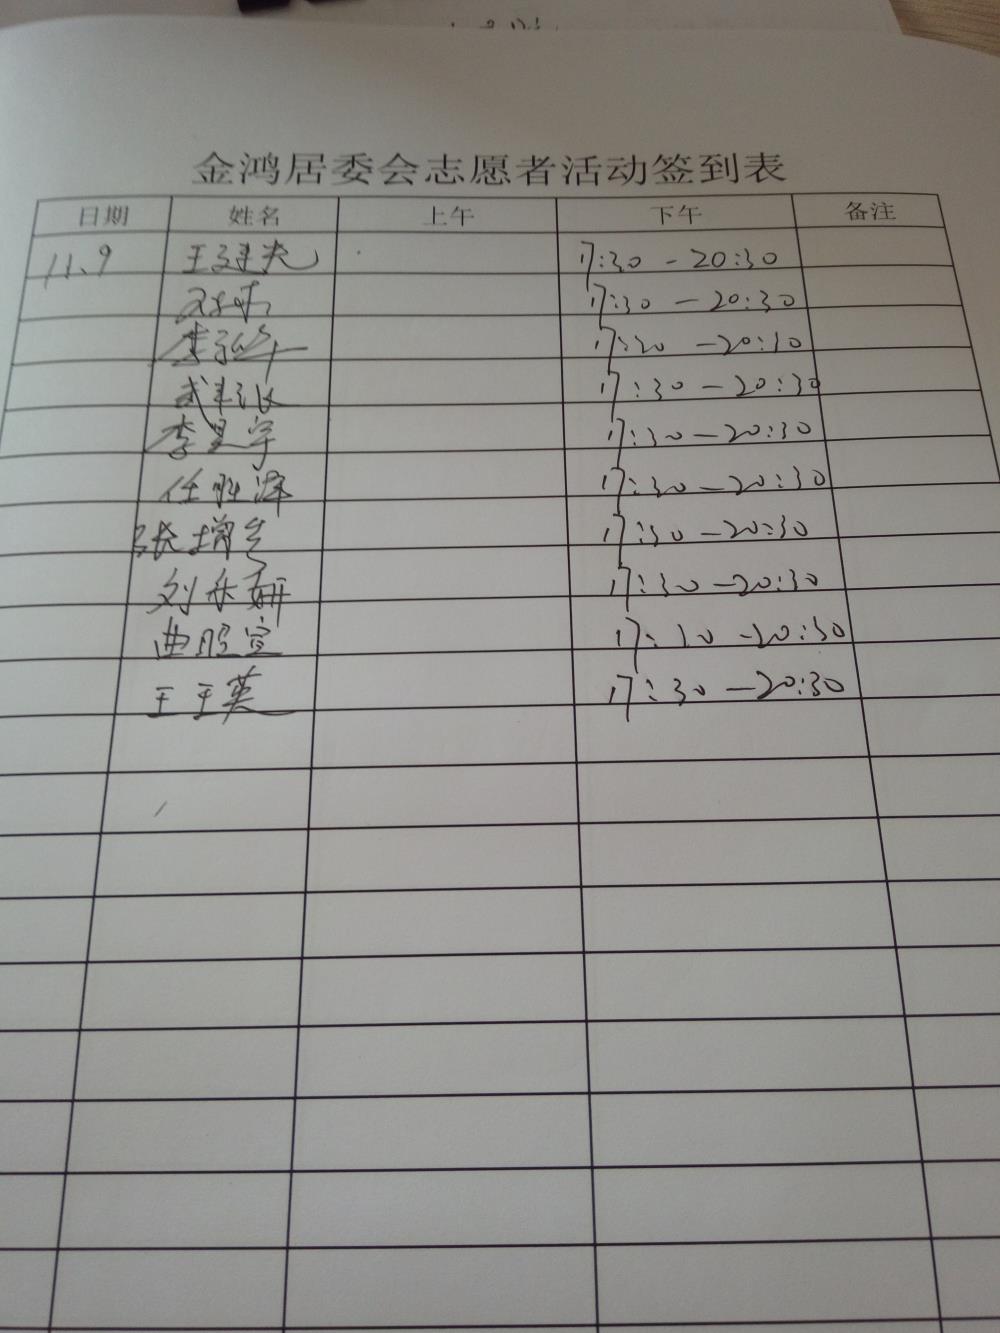 金鸿居委会志愿者活动签到表
日期 姓名 上午 下午 备注
11.9 王建夫 17:30-20:30
17:30-20:30
李 17:30-20:30
武 17:30-20:30
李昊宇 17:30-20:30
任胜泽 17:30-20:30
张增 17:30-20:30
刘乐妍 17:30-20:30
曲昭宜 17:30-20:30
王玉英 17:30-20:30